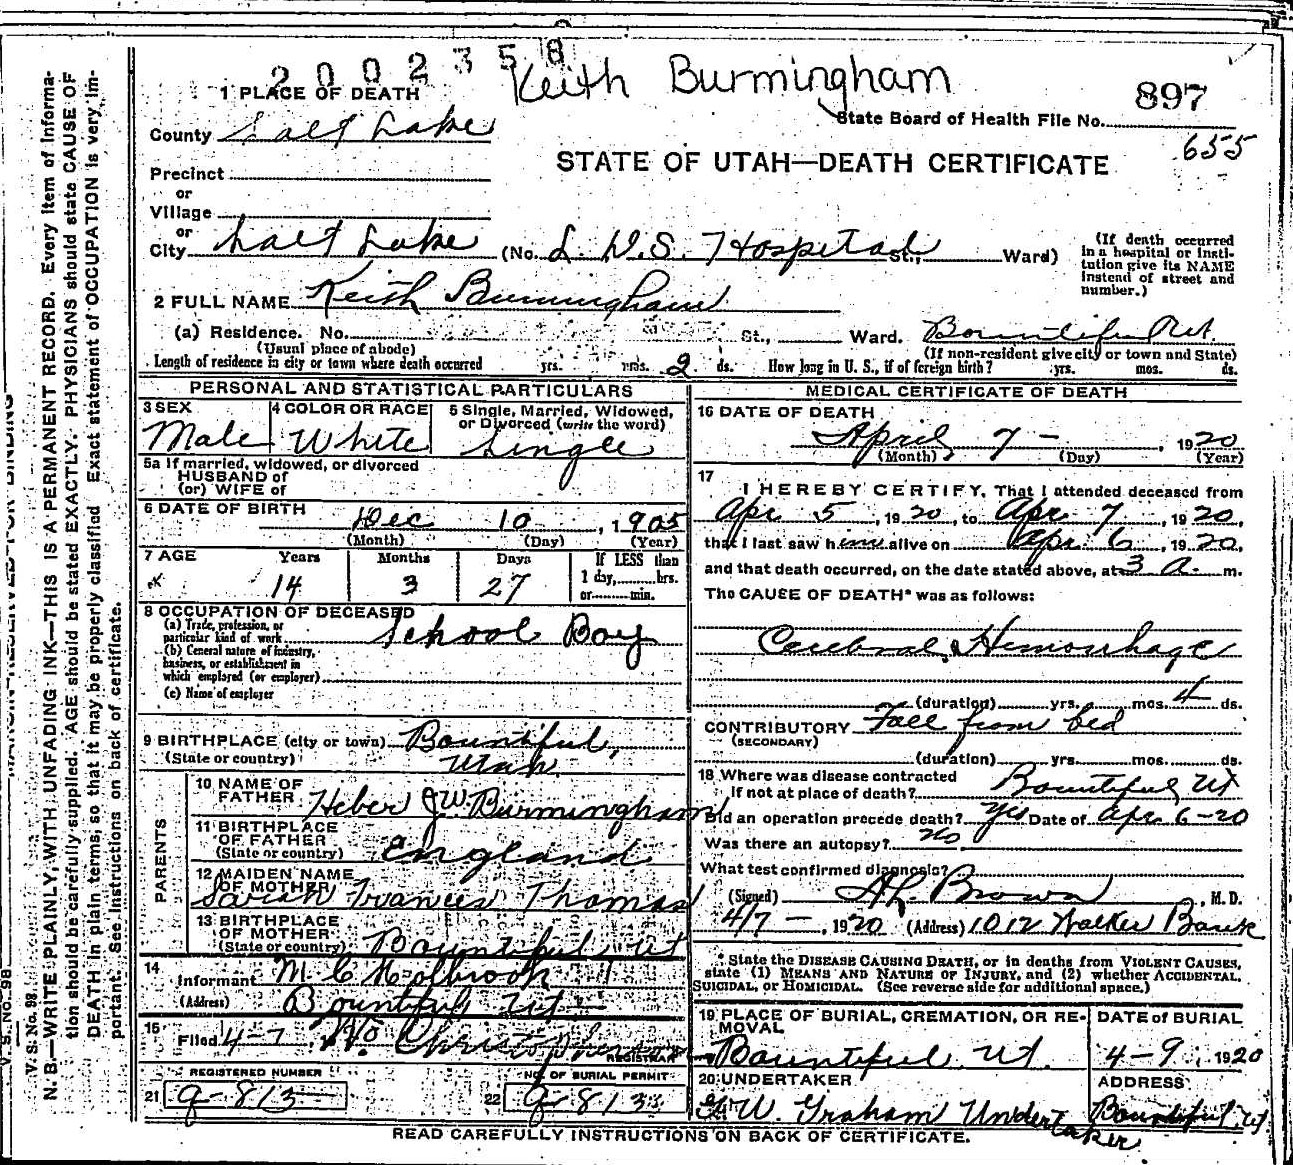 2002358
Keith Burmingham
897
1 PLACE OF DEATH
State Board of Health File No.
County Salt Lake
655
STATE OF UTAH—DEATH CERTIFICATE
Precinct
or
Village
or
City Salt Lake (No. L. D. S. Hospital St., Ward)
(If death occurred in a hospital or institution give its NAME instead of street and number.)
2 FULL NAME Keith Burmingham
(a) Residence. No. St., Ward. Bountiful Ut.
(Usual place of abode) (If non-resident give city or town and State)
Length of residence in city or town where death occurred yrs. mos. 2 ds. How long in U. S., if of foreign birth? yrs. mos. ds.
PERSONAL AND STATISTICAL PARTICULARS
3 SEX Male
4 COLOR OR RACE White
5 Single, Married, Widowed, or Divorced (write the word) Single
5a If married, widowed, or divorced
HUSBAND of
(or) WIFE of
6 DATE OF BIRTH Dec 10, 1905
(Month) (Day) (Year)
7 AGE Years Months Days If LESS than
14 3 27 1 day, hrs.
or min.
8 OCCUPATION OF DECEASED
(a) Trade, profession, or
particular kind of work School Boy
(b) General nature of industry,
business, or establishment in
which employed (or employer)
(c) Name of employer
9 BIRTHPLACE (city or town) Bountiful,
(State or country) Utah
PARENTS
10 NAME OF FATHER Heber J.W. Burmingham
11 BIRTHPLACE OF FATHER (State or country) England
12 MAIDEN NAME OF MOTHER Sarah Frances Thomas
13 BIRTHPLACE OF MOTHER (State or country) Bountiful Ut
14 Informant M C Holbrook
(Address) Bountiful Ut
15 Filed 4-7
REGISTRAR
REGISTERED NUMBER
21 g-813
NO. OF BURIAL PERMIT
22 g-813
MEDICAL CERTIFICATE OF DEATH
16 DATE OF DEATH
April 7 -, 1920
(Month) (Day) (Year)
17 I HEREBY CERTIFY, That I attended deceased from
Apr 5, 1920, to Apr 7, 1920,
that I last saw him alive on Apr 6, 1920,
and that death occurred, on the date stated above, at 3 a. m.
The CAUSE OF DEATH* was as follows:
Cerebral Hemorrhage
(duration) yrs. mos. 4 ds.
CONTRIBUTORY Fall from bed
(SECONDARY)
(duration) yrs. mos. ds.
18 Where was disease contracted
If not at place of death? Bountiful Ut
Did an operation precede death? Yes Date of Apr 6-20
Was there an autopsy? No
What test confirmed diagnosis?
(Signed) A L Brown, M. D.
4/7 -, 1920 (Address) 1012 Walker Bank
* State the DISEASE CAUSING DEATH, or in deaths from VIOLENT CAUSES,
state (1) MEANS AND NATURE OF INJURY, and (2) whether ACCIDENTAL,
SUICIDAL, or HOMICIDAL. (See reverse side for additional space.)
19 PLACE OF BURIAL, CREMATION, OR REMOVAL Bountiful Ut.
DATE OF BURIAL 4-9, 1920
20 UNDERTAKER
W. Graham Undertaker
ADDRESS
Bountiful Ut
READ CAREFULLY INSTRUCTIONS ON BACK OF CERTIFICATE.
V. S. No. 98
V. S. No. 98.
N. B.—WRITE PLAINLY, WITH UNFADING INK—THIS IS A PERMANENT RECORD. Every item of informa-
tion should be carefully supplied. AGE should be stated EXACTLY. PHYSICIANS should state CAUSE OF
DEATH in plain terms, so that it may be properly classified. Exact statement of OCCUPATION is very im-
portant. See instructions on back of certificate.